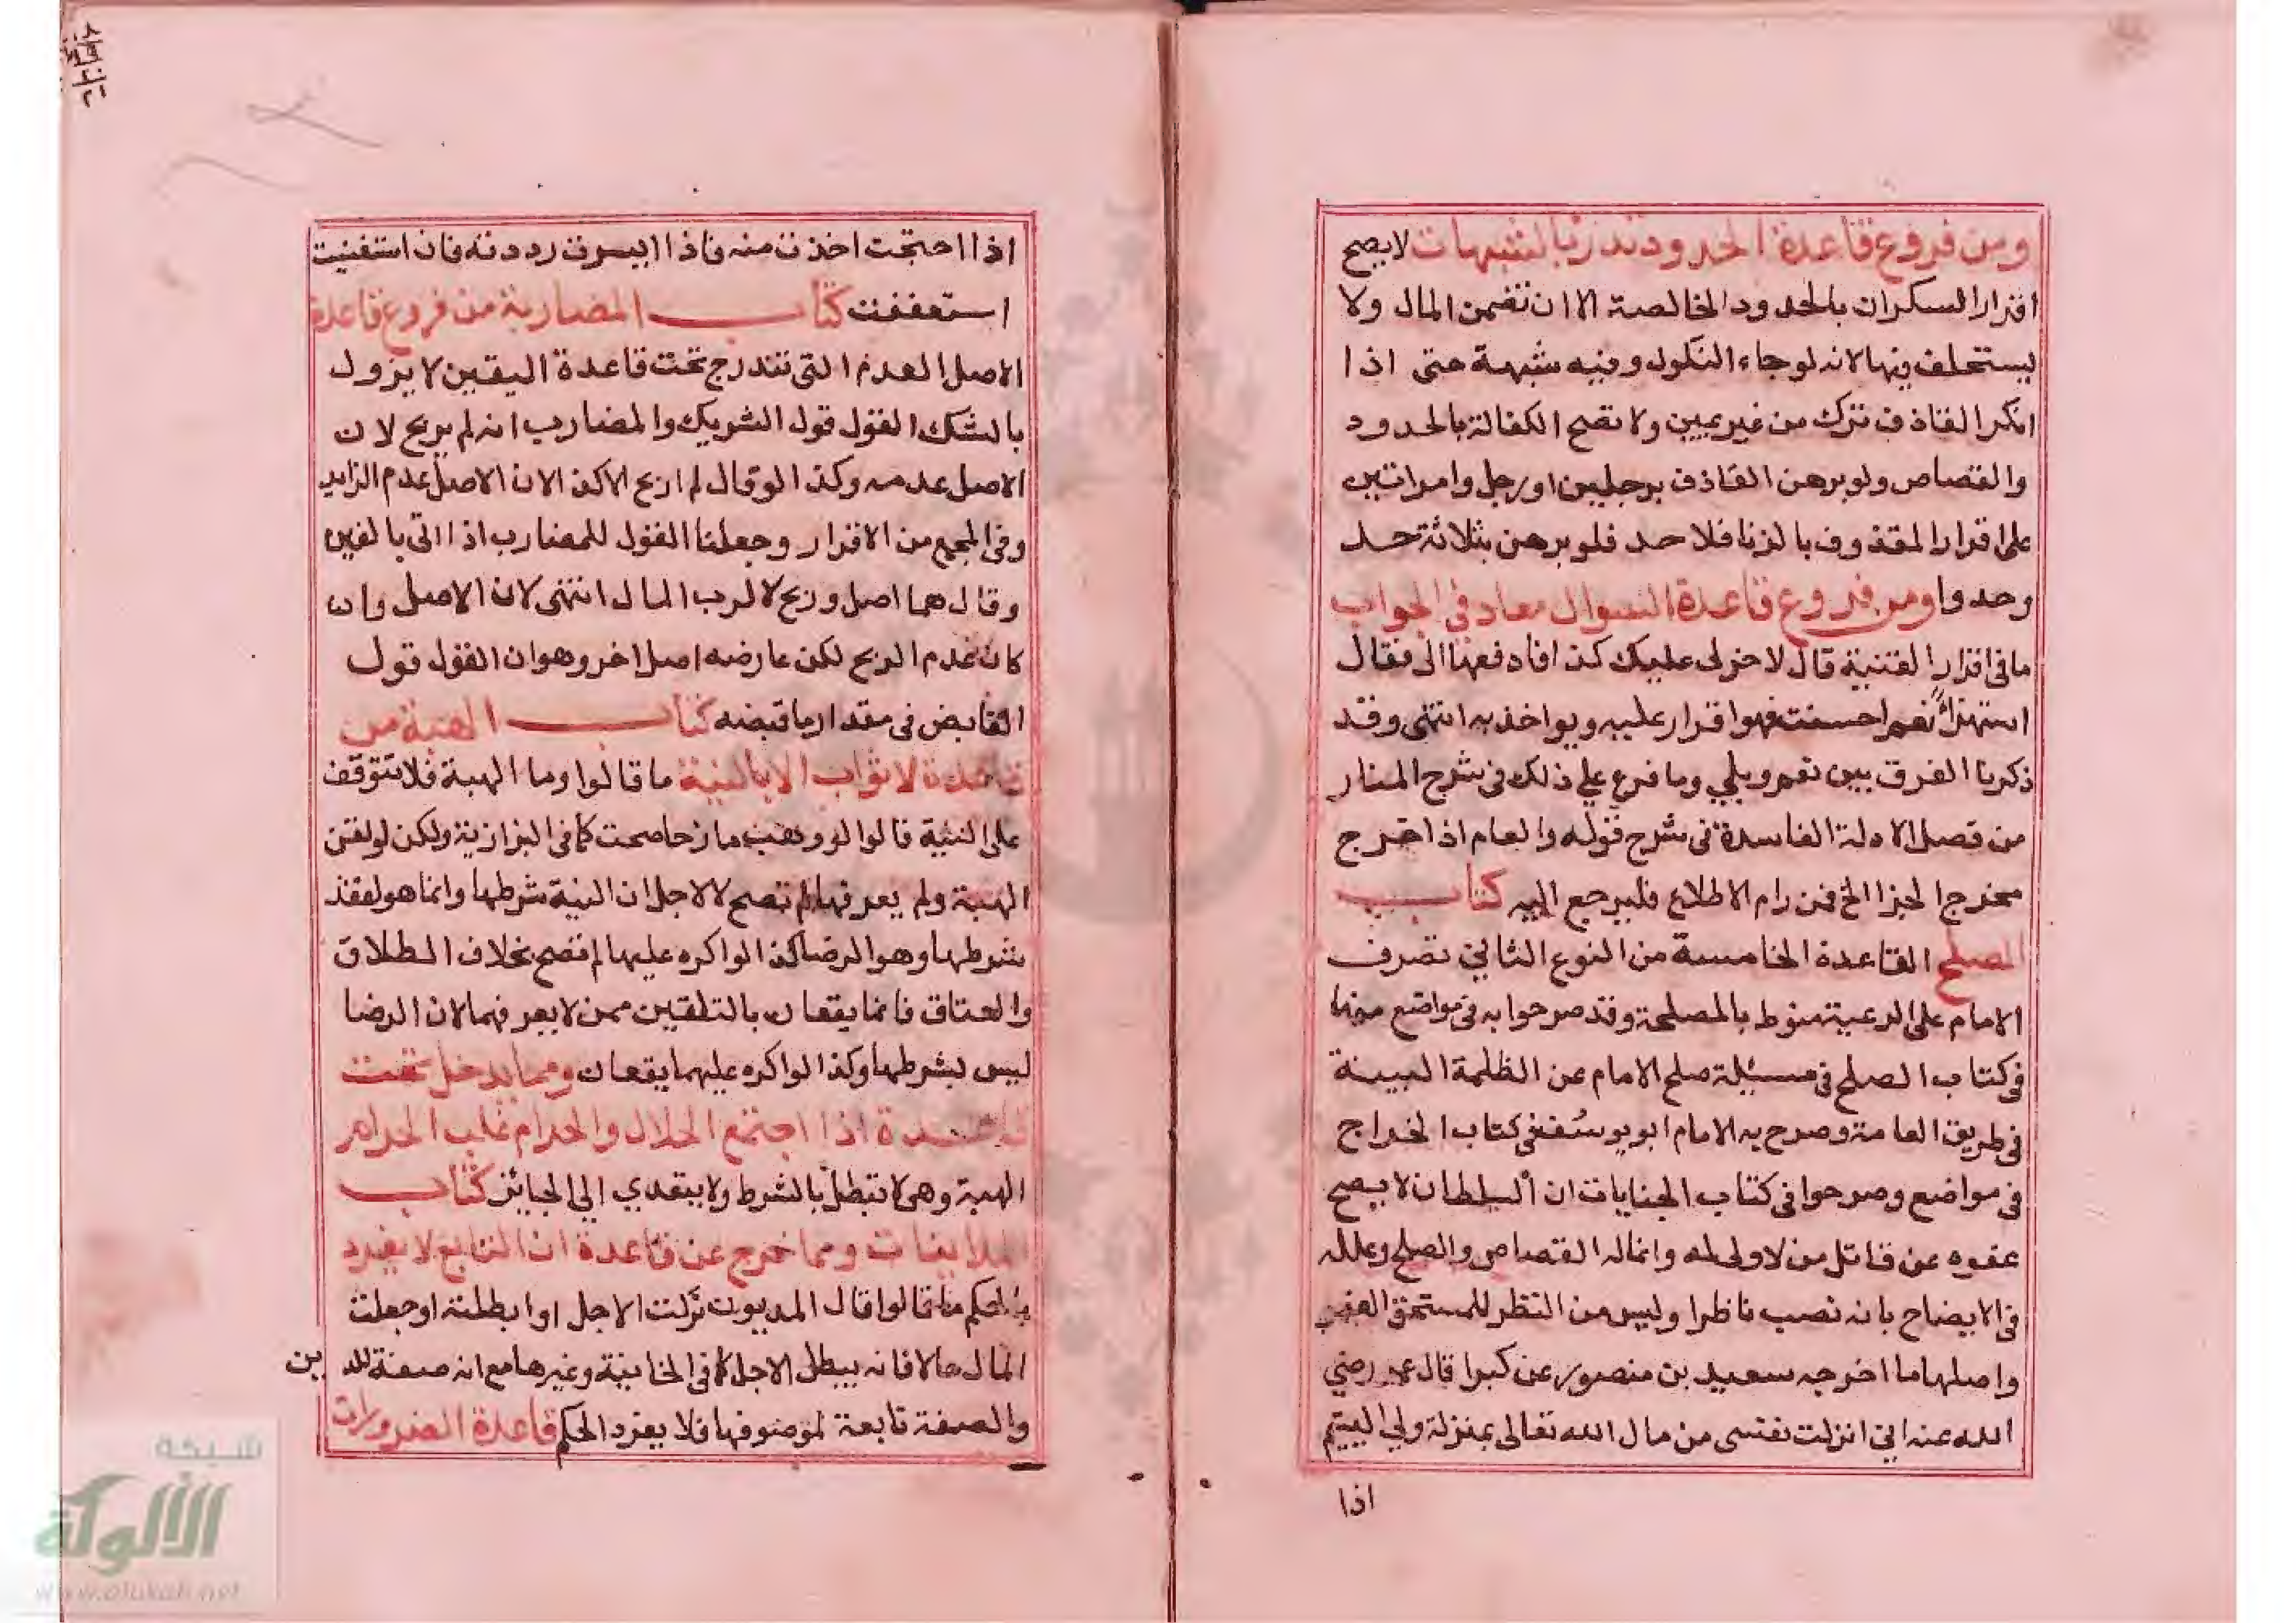 ومن فروع قاعدة الحدود تدرئ بالشبهات لا يصح
اقرار السكران بالحدود الخالصة الا ان تضمن المال ولا
يستحلف فيها لانه لو جاء النكول وفيه شبهة حتى اذا
انكر القاذف ترك من غير يمين ولا تصح الكفالة بالحدود
والقصاص ولو برهن القاذف برجلين او رجل وامراتين
على اقرار المقذوف بالزنا فلا حد فلو برهن بثلاثة حد
وحدوا ومن فروع قاعدة السوال معاد في الجواب
ما في اقرار القنية قال لاخر لى عليك كذا فادفعها الى فقال
استهزاءً نعم احسنت فهو اقرار عليه ويواخذ به انتهى وقد
ذكرنا الفرق بين نعم وبلي وما فرع علي ذلك في شرح المنار
من فصل الادلة الفاسدة في شرح قوله والعام اذا خرج
مخرج الجزا الخ فمن رام الاطلاع فليرجع اليه كتاب
الصلح القاعدة الخامسة من النوع الثاني تصرف
الامام على الرعية منوط بالمصلحة وقد صرحوا به في مواضع منها
في كتاب الصلح في مسئلة صلح الامام عن الظلمة البينة
في طريق العامة وصرح به الامام ابو يوسُف في كتاب الخراج
في مواضع وصرحوا في كتاب الجنايات ان السلطان لا يصح
عفوه عن قاتل من لا ولى له وانما له القصاص والصلح وعلله
في الايضاح بانه نصب ناظرا وليس من النظر للمستحق العفو
واصلها ما اخرجه سعيد بن منصور عن كبرا قال عمر رضي
الله عنه اني انزلت نفسى من مال الله تعالى بمنزلة ولي اليتيم
اذا
اذا احتجت اخذت منه فاذا ايسرت رددته فان استغنيت
استعففت كتاب المضاربة من فروع قاعدة
الاصل العدم التى تندرج تحت قاعدة اليقين لا يزول
بالشك القول قول الشريك والمضارب انه لم يربح لان
الاصل عدمه وكذا لو قال لم اربح الا كذا لان الاصل عدم الزايد
وفي المجمع من الاقرار وجعلنا القول للمضارب اذا اتى بالفين
وقال هما اصل وربح لا لرب المال انتهى لان الاصل وان
كان عدم الربح لكن عارضه اصل اخر وهو ان القول قول
القابض في مقدار ما قبضه كتاب الهبة من
قاعدة لا ثواب الا بالنية ما قالوا وما الهبة فلا تتوقف
على النية قالوا لو وهب مازحا صحت كما في البزازية ولكن لو لقن
الهبة ولم يعرفها لم تصح لا لاجل ان النية شرطها وانما هو لفقد
شرطها وهو الرضا كذا لو اكره عليها لم تصح بخلاف الطلاق
والعتاق فانما يقعان بالتلقين ممن لا يعرفهما لان الرضا
ليس بشرطهما وكذا لو اكره عليهما يقعان ومما يدخل تحت
قاعدة اذا اجتمع الحلال والحرام غلب الحرام
الهبة وهى لا تبطل بالشرط ولا يتعدي الي الجائز كتاب
المداينات ومما خرج عن قاعدة ان التابع لا يفرد
بالحكم ما قالوا قال المديون تركت الاجل او ابطلته او جعلت
المال حالا فانه يبطل الاجل كما في الخانية وغيرها مع انه صفة للدين
والصفة تابعة لموصوفها فلا يفرد الحكم قاعدة الضرورات
شبكة
الألوكة
www.alukah.net